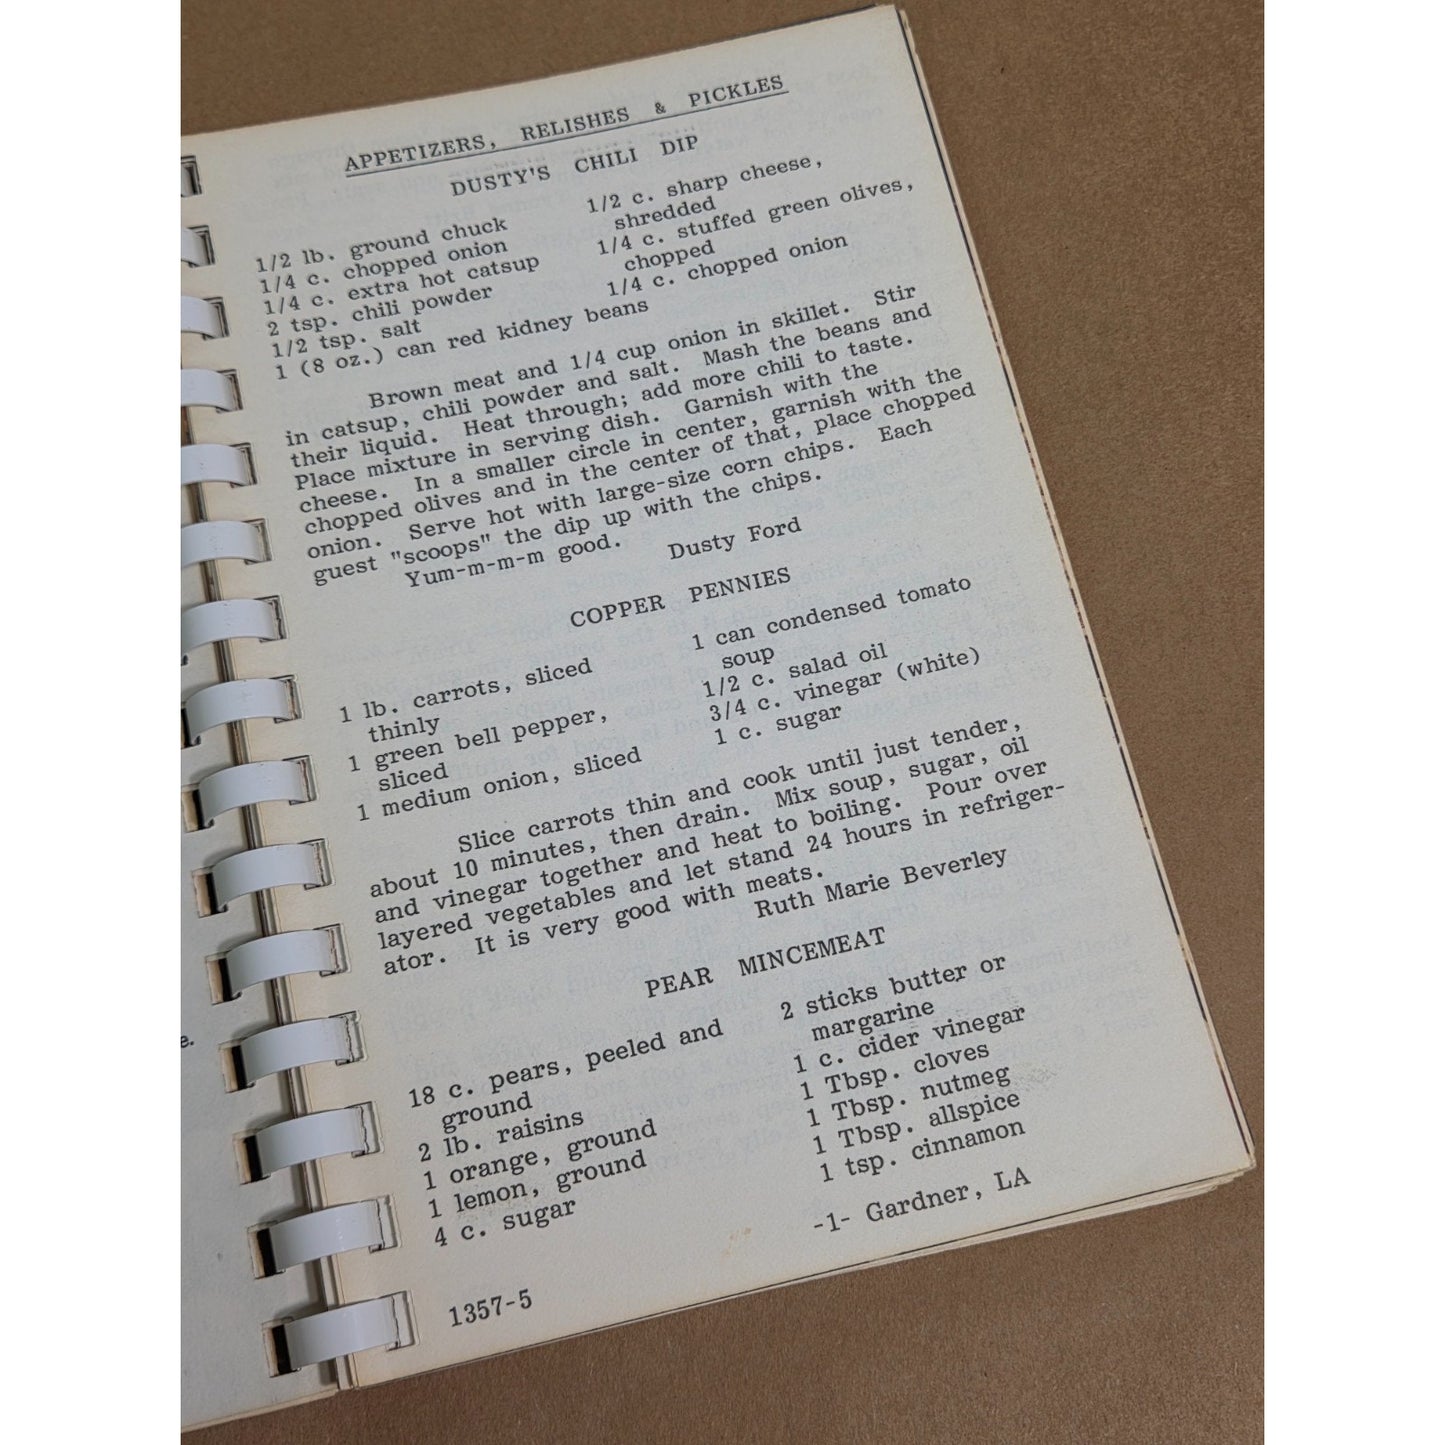 APPETIZERS, RELISHES & PICKLES
DUSTY'S CHILI DIP
1/2 lb. ground chuck
1/4 c. chopped onion
1/4 c. extra hot catsup
2 tsp. chili powder
1/2 tsp. salt
1 (8 oz.) can red kidney beans
1/2 c. sharp cheese,
shredded
1/4 c. stuffed green olives,
chopped
1/4 c. chopped onion
Brown meat and 1/4 cup onion in skillet. Stir
in catsup, chili powder and salt. Mash the beans and
their liquid. Heat through; add more chili to taste.
Place mixture in serving dish. Garnish with the
cheese. In a smaller circle in center, garnish with the
chopped olives and in the center of that, place chopped
onion. Serve hot with large-size corn chips. Each
guest "scoops" the dip up with the chips.
Yum-m-m-m good.
Dusty Ford
COPPER PENNIES
1 lb. carrots, sliced
thinly
1 green bell pepper,
sliced
1 medium onion, sliced
1 can condensed tomato
soup
1/2 c. salad oil
3/4 c. vinegar (white)
1 c. sugar
Slice carrots thin and cook until just tender,
about 10 minutes, then drain. Mix soup, sugar, oil
and vinegar together and heat to boiling. Pour over
layered vegetables and let stand 24 hours in refriger-
ator. It is very good with meats.
Ruth Marie Beverley
PEAR MINCEMEAT
18 c. pears, peeled and
ground
2 lb. raisins
1 orange, ground
1 lemon, ground
4 c. sugar
2 sticks butter or
margarine
1 c. cider vinegar
1 Tbsp. cloves
1 Tbsp. nutmeg
1 Tbsp. allspice
1 tsp. cinnamon
1357-5
-1- Gardner, LA